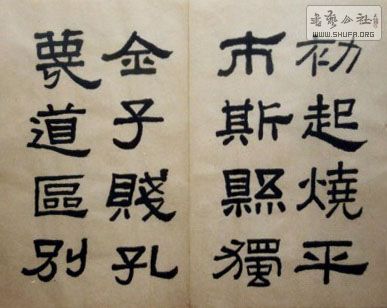 初起燒平
市斯縣獨
金子賤孔
蔑道區別
書藝公社
WWW.SHUFA.ORG